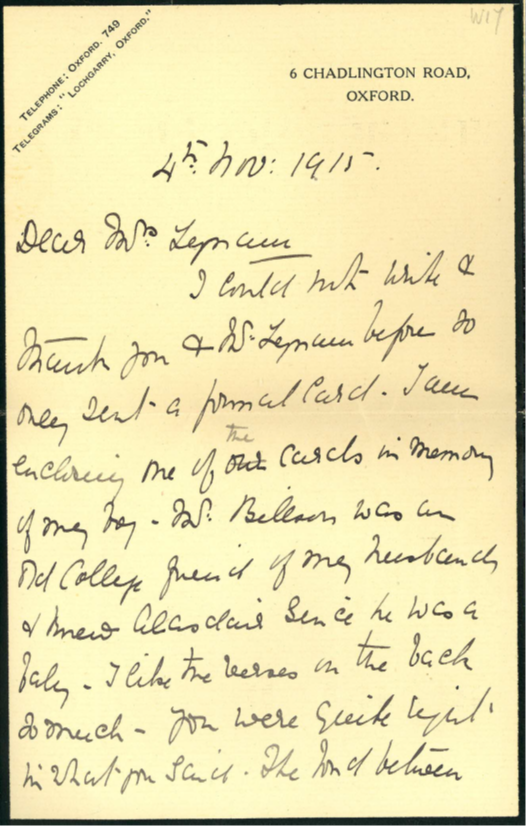 W17
TELEPHONE: OXFORD. 749
TELEGRAMS: "LOCHGARRY, OXFORD."
6 CHADLINGTON ROAD,
OXFORD.
4th Nov: 1915.
Dear Mrs
I could not write &
thank you & Mr. before so
only sent a formal Card. I am
enclosing one of our the Cards in memory
of my boy - Mr. Billson was an
old College friend of my husbands
& knew Alasdair since he was a
baby - I like the verses on the back
so much - you were quite right
in what you said. The bond between